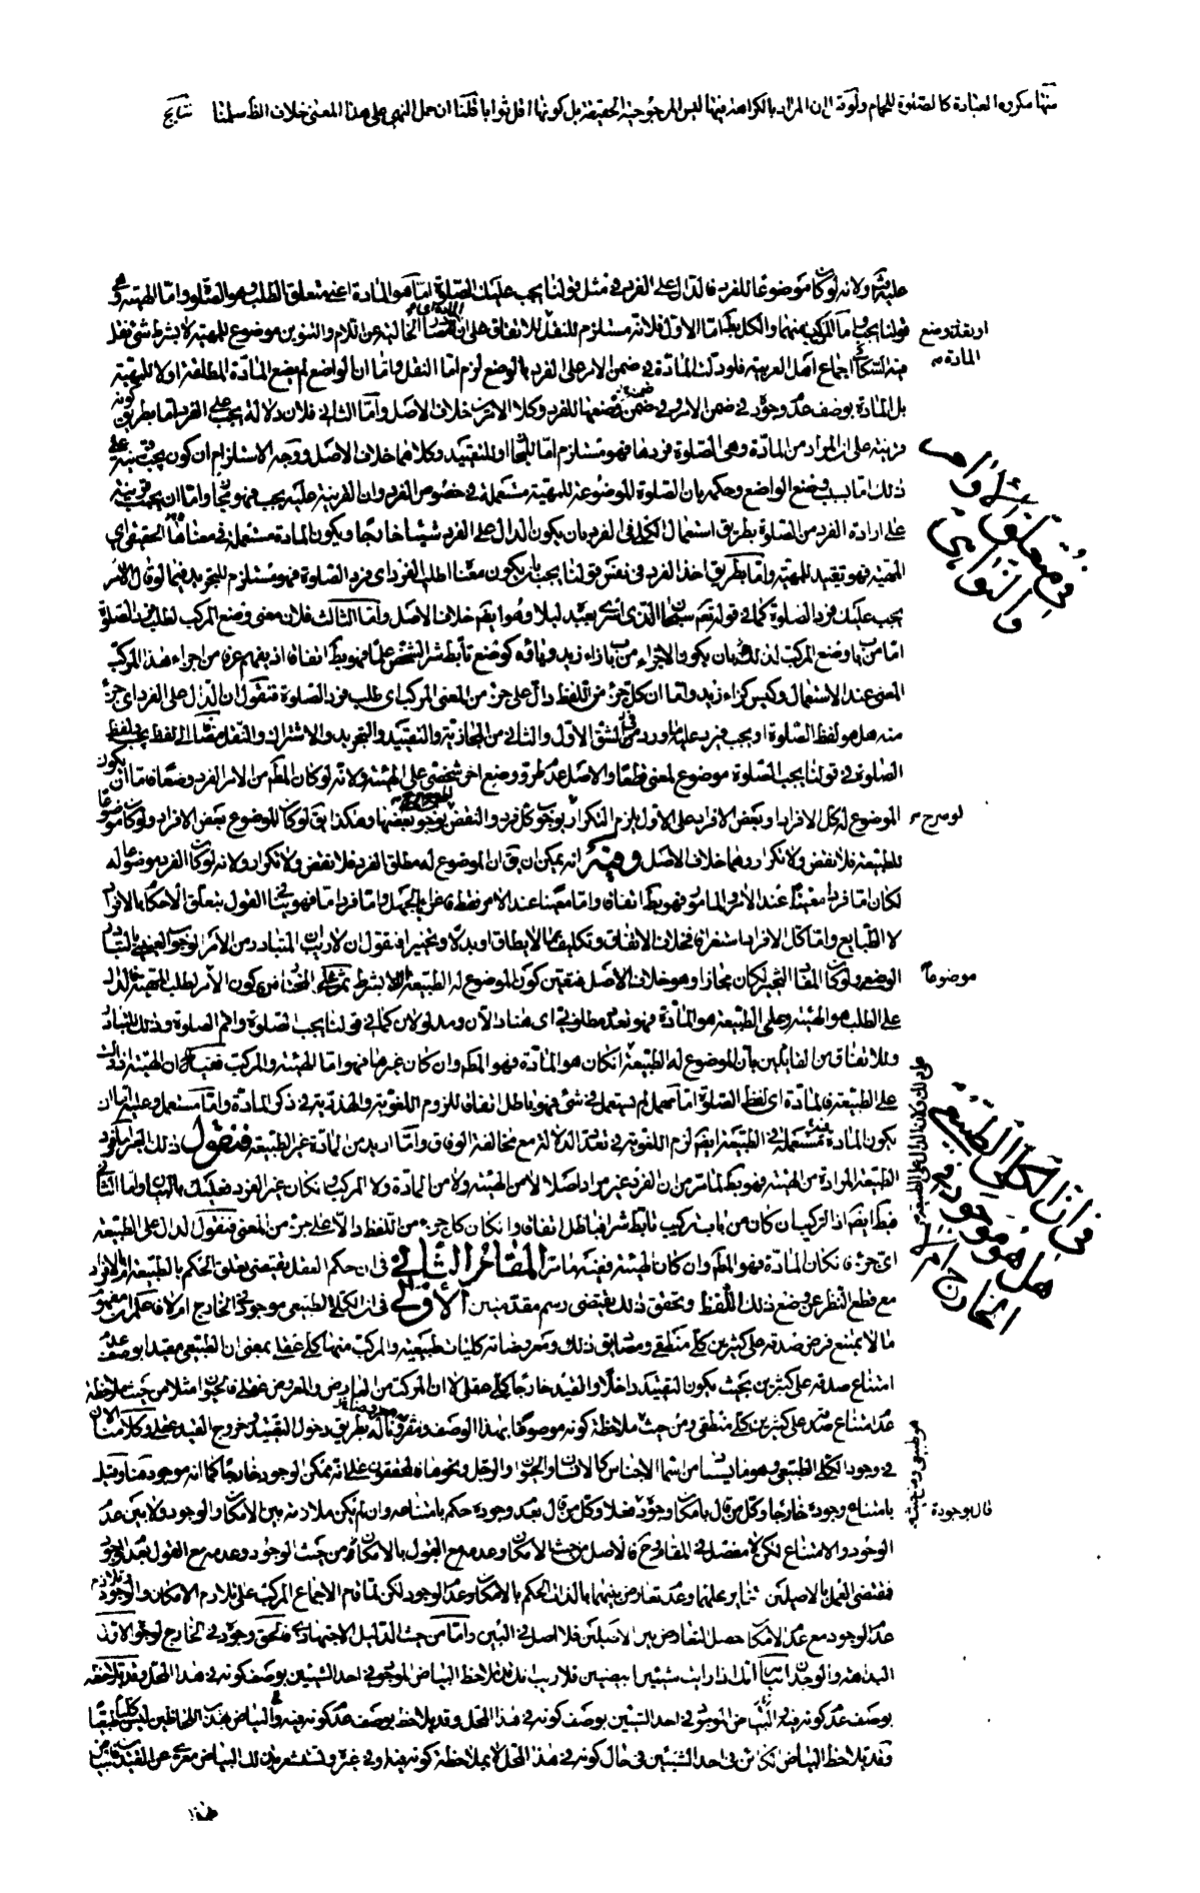 منها مكروه العبادة كالصلوة للحمام ولو قيل ان المراد بالكراهة فيها ليس المرجوحية الحقيقية بل كونها اقل ثوابا قلنا ان حمل النهي على هذا المعنى خلاف الظ سلمنا نتايج
عليه ولانه لو كان موضوعا للفرد فالدال على الفرد في مثل قولنا يجب عليك الصلوة اما هو المادة اعني متعلق الطلب وهو الصلوة واما الهيئة وهي
قولنا يجب واما المركب منهما والكل بط اما الاول فلانه مستلزم للنقل للاتفاق على ان المصادر الخالية عن اللام والتنوين موضوع للمهية لا بشرط شئ نقل
فيه السكاكي اجماع اهل العربية فلو دلت المادة في ضمن الامر على الفرد بالوضع لزم اما النقل واما ان الواضع لم يضع المادة المطلقة اولا للمهية
بل المادة بوصف عدم وجوده في ضمن الامر وفي ضمن وضعها للفرد وكلا الامرين خلاف الاصل واما الثاني فلان دلالة يجب على الفرد اما بطريق كونه
قرينة على ان المراد من المادة وهي الصلوة فردها فهو مستلزم اما للمجاز او للتقييد وكلاهما خلاف الاصل ووجه الاستلزام ان كون يجب قرينة على
ذلك اما بسبب وضع الواضع وحكمه بان الصلوة الموضوعة للمهية مستعملة في خصوص الفرد وان القرينة عليه يجب فهو مجاز واما ان يجب قرينة
على ارادة الفرد من الصلوة بطريق استعمال الكلي في الفرد بان يكون الدال على الفرد شيئا خارجا ويكون المادة مستعملة في معناها الحقيقي اي
المهية فهو تقييد للمهية واما بطريق اخذ الفرد في نفس قولنا يجب بان يكون معناه اطلب الفرد اي فرد الصلوة فهو مستلزم للتجريد فيما لو قال الامر
يجب عليك فرد الصلوة كما في قوله تعم سبحان الذي اسرى بعبده ليلا وهو ايضم خلاف الاصل واما الثالث فلان معنى وضع المركب لطلب فرد الصلوة
اما من باب وضع المركب لذلك بان يكون الاجزاء من باب زاء زيد ويائه كوضع تأبط شرا لشخص علما فهو بط اتفاقا اذ يفهم عرفا من اجزاء هذا المركب
المعنى عند الاستعمال وليس كزاء زيد واما ان كل جزء من اللفظ دال على جزء من المعنى المركب اي طلب فرد الصلوة فنقول ان الدال على الفرد اي جزء
منه هل هو لفظ الصلوة او يجب فيرد عليه ما ورد في الشق الاول والثاني من المجازية والتقييد والتجريد والاشتراك والنقل مضافا الى لفظ يجب ولفظ
الصلوة في قولنا يجب الصلوة موضوع لمعنى قطعا والاصل عدم طرو وضع اخر شخصي على الهيئة ولانه لو كان المطم من الامر الفرد وضعا فاما ان يكون
الموضوع له كل الافراد او بعض الافراد على الاول يلزم التكرار بوجوب كل فرد والنقض بوجوب بعضها وهكذا بق لو كان الموضوع بعض الافراد ولو كان موضوعا
للطبيعة فلا نقض ولا تكرار وهما خلاف الاصل وفيه انه يمكن ان يق ان الموضوع له مطلق الفرد فلا نقض ولا تكرار ولانه لو كان الفرد موضوعا له
لكان اما فردا معينا عند الامر والمامور فهو بط اتفاقا واما معينا عند الامر فقط فاغراء بالجهل واما فردا ما فهو ينافي القول بتعلق الاحكام بالافراد
لا الطبايع واما كل الافراد استغراقا فخلاف الاتفاق وتكليف بما لا يطاق او بدلا وتخييرا فنقول ان لا ريب ان المتبادر من الامر الوجوب العيني بالتبادر
الوضعي ولو كان المفاد التخيير لكان مجازا وهو خلاف الاصل فتعين كون الموضوع له الطبيعة لا بشرط ثم على المختار من كون الامر لطلب المهية فالدال
على الطلب هو الهيئة وعلى الطبيعة هو المادة فهو تعدد مطلوبي اي هنا دالان ومدلولان كما في قولنا يجب الصلوة واقم الصلوة وذلك للتبادر
وللاتفاق من القايلين بان الموضوع له الطبيعة ان كان هو المادة فهو المطم وان كان غيرها فهو اما الهيئة والمركب فعلى كل ان الهيئة اذا دلت
على الطبيعة فالمادة اي لفظ الصلوة اما مهمل لم يستعمل في شئ فهو باطل اتفاقا للزوم اللغوية والهذرية في ذكر المادة واما مستعمل وعليه اما ان
يكون المادة مستعملة في الطبيعة ايضم لزم اللغوية في تعدد الدلالة مع مخالفة الوفاق واما اريد من المادة غير الطبيعة فنقول ذلك الغير اما فرد
الطبيعة المرادة من الهيئة فهو بط لما مر من ان الفرد غير مراد اصلا لا من الهيئة ولا من المادة ولا المركب وان كان غير الفرد فعليك بالبيان واما الثاني
فبط ايضم اذ التركيب ان كان من باب تركيب تأبط شرا فباطل اتفاقا وان كان كل جزء من اللفظ دالا على جزء من المعنى فنقول الدال على الطبيعة
اي جزء فان كان المادة فهو المطم وان كان الهيئة ففيه ما مر المقام الثاني في ان حكم العقل يقتضي تعلق الحكم بالطبيعة او الافراد
مع قطع النظر عن وضع ذلك اللفظ وتحقيق ذلك يقتضي رسم مقدمتين الاولى في ان الكلي الطبيعي موجود في الخارج ام لا فاعلم ان مفهوم
ما لا يمتنع فرض صدقه على كثيرين كلي منطقي ومصاديق ذلك ومعروضاته كليات طبيعية والمركب منهما كلي عقلي بمعنى ان الطبيعي مقيدا بوصف عدم
امتناع صدقه على كثيرين بحيث يكون التقييد داخلا والقيد خارجا كلي عقلي لا ان المركب من العارض والمعروض عقلي فالحيوان مثلا من حيث ملاحظة
عدم امتناع صدقه على كثيرين كلي منطقي ومن حيث ملاحظة كونه موصوفا بهذا الوصف ومعروضا له بطريق دخول التقييد وخروج القيد عقلي وكلامنا الان
في وجود الكلي الطبيعي وهو ما يتساوى من شما الاجناس كالانسان والحيوان والرجل ونحوها فالمحققون على انه ممكن الوجود خارجا كما انه موجود هنا وقيل
بامتناع وجوده خارجا وكل من قال بامكان وجوده فعلا وكل من قال بعدم وجوده حكم بامتناعه وان لم يكن ملازمة بين الامكان والوجود ولا بين عدم
الوجود والامتناع لكن لا مفصل في المقام وح فالاصل من حيث الامكان وعدمه مع القول بالامكان ومن حيث الوجود وعدمه مع القول بعدم الوجود
فمقتضى العمل بالاصلين البناء عليهما وعدم تعارض بينهما بالذات الحكم بالامكان وعدم الوجود لكن لما قام الاجماع المركب على تلازم الامكان والوجود وتلازم
عدم الوجود مع عدم الامكان حصل التعارض بين الاصلين فلا اصل في البين واما من حيث الدليل الاجتهادي فالحق وجوده في الخارج لوجوه الاول
البداهة والوجدان بيانه انك اذا رايت شيئين ابيضين فلا ريب انك قد تلاحظ البياض الموجود في احد الشيئين بوصف كونه في هذا المحل وقد تلاحظه
بوصف عدم كونه فيه البياض الموجود في احد الشيئين بوصف كونه في هذا المحل وقد يلاحظ بوصف عدم كونه فيه والبياض بهذين اللحاظين ليس كليا طبيعيا
وقد يلاحظ البياض الكائن في احد الشيئين في حال كونه في هذا المحل لا بملاحظة كونه فيه او في غيره وتستشعر بان ذلك البياض معرى عن القيد
او يقال وضع المادة
في متعلق الاوامر والنواهي
موضوعا
في ان الكلي الطبيعي هل هو موجود في الخارج ام لا
قال بوجوده